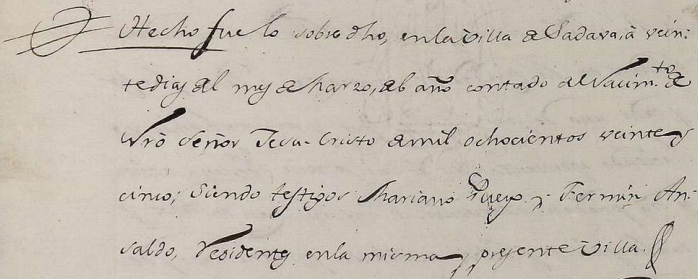 Hecho fue lo sobredho, en la Villa de Sadava, à vein-
te dias del mes de Marzo, del año contado del Nacim.to de
Nro Señor Jesu-Cristo de mil ochocientos veinte y
cinco; siendo testigos Mariano Pueyo y Fermin An-
saldo, residentes en la misma y presente Villa.